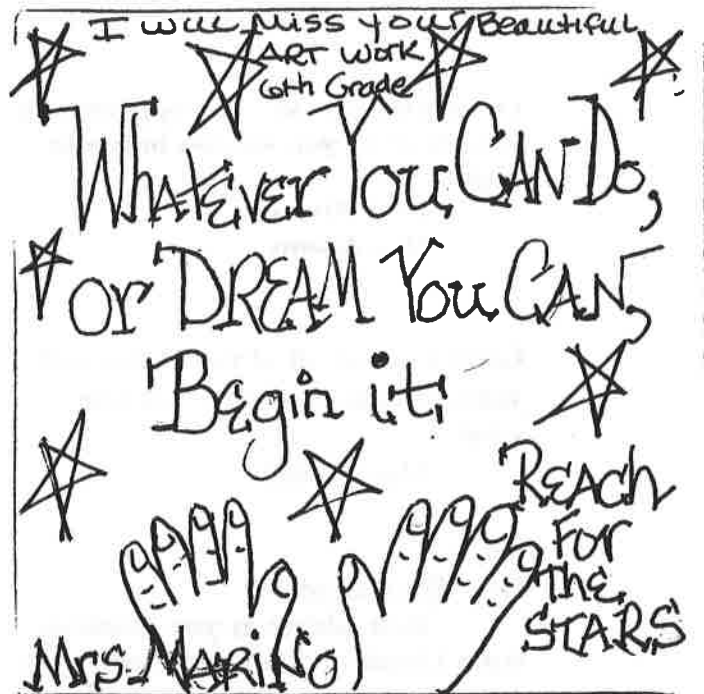 I will Miss your Beautiful
ART Work
6th Grade
Whatever You CAN Do,
or DREAM You CAN,
Begin it.
REACh
For
The
STARS
Mrs. MARiNO